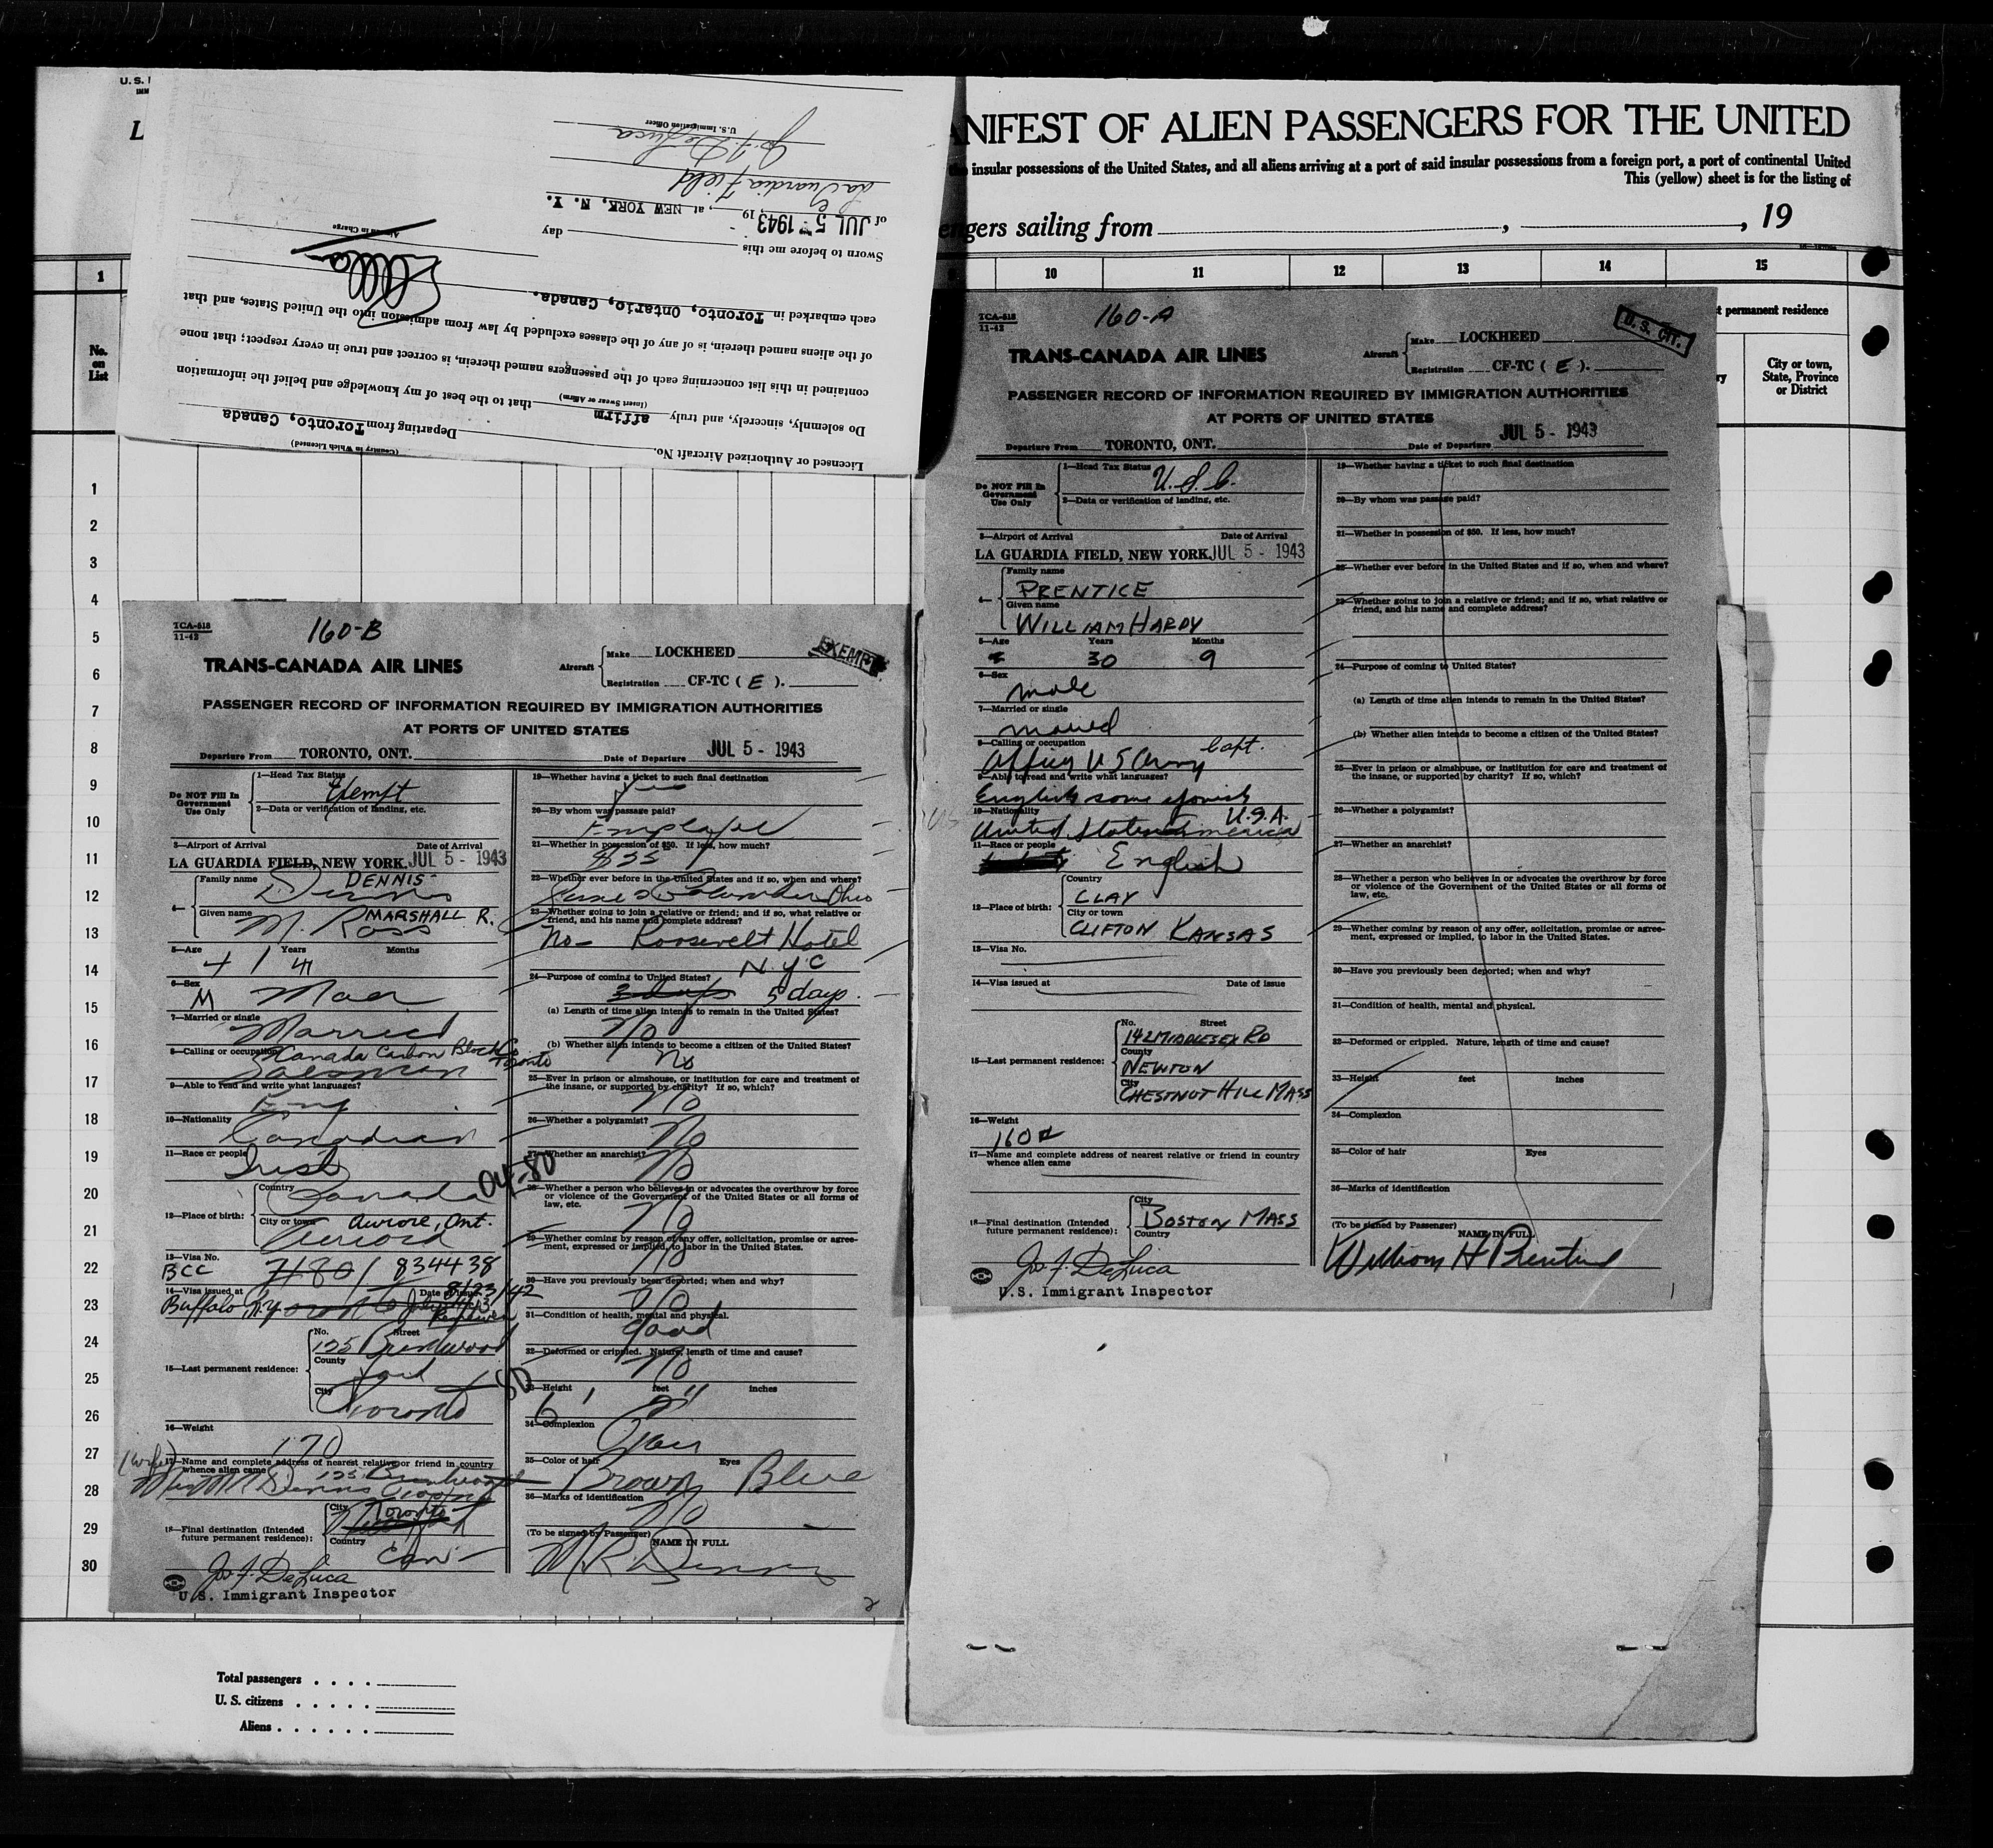 U.S.
IMM
L
ANIFEST OF ALIEN PASSENGERS FOR THE UNITED
insular possessions of the United States, and all aliens arriving at a port of said insular possessions from a foreign port, a port of continental United
This (yellow) sheet is for the listing of
engers sailing from , , 19
1 10 11 12 13 14 15
No.
on
List
t permanent residence
ry
City or town,
State, Province
or District
Licensed or Authorized Aircraft No. Departing from Toronto, Canada
(Country in Which Licensed)
Do solemnly, sincerely, and truly affirm that to the best of my knowledge and belief the information
(Insert Swear or Affirm)
contained in this list concerning each of the passengers named therein, is correct and true in every respect; that none
of the aliens named therein, is of any of the classes excluded by law from admission into the United States, and that
each embarked in Toronto, Ontario, Canada.
in Charge
Sworn to before me this day
of JUL 5 - 1943, 19 , at NEW YORK, N. Y.
La Guardia Field
J. F. DeLuca
U.S. Immigration Officer
1
2
3
4
5
6
7
8
9
10
11
12
13
14
15
16
17
18
19
20
21
22
23
24
25
26
27
28
29
30
TCA-518
11-42
160-B
EXEMPT
TRANS-CANADA AIR LINES
Aircraft
Make LOCKHEED
Registration CF-TC ( E ).
PASSENGER RECORD OF INFORMATION REQUIRED BY IMMIGRATION AUTHORITIES
AT PORTS OF UNITED STATES
Departure From TORONTO, ONT. Date of Departure JUL 5 - 1943
Do NOT Fill In
Government
Use Only
1—Head Tax Status
Exempt
2—Data or verification of landing, etc.
3—Airport of Arrival Date of Arrival
LA GUARDIA FIELD, NEW YORK. JUL 5 - 1943
4—
Family name DENNIS
Dennis
Given name MARSHALL R.
M. Ross
5—Age Years Months
41
6—Sex
M
7—Married or single
Married
8—Calling or occupation Canada Carbon Block Co
Toronto
Salesman
9—Able to read and write what languages?
Eng
10—Nationality
Canadian
11—Race or people
Irish
04-80
12—Place of birth:
Country
Canada
City or town Aurore, Ont.
13—Visa No.
BCC 7180/ 834438
14—Visa issued at Date of issue
Buffalo N.Y. 8/23/42
15—Last permanent residence:
No. Street
125 Brentwood
County
York
City
Toronto
SD
16—Weight
170
17—Name and complete address of nearest relative or friend in country
whence alien came
(wife)
125 Brentwood
Dennis Toronto
18—Final destination (Intended
future permanent residence):
City Toronto
Country
Can
Jos. F. DeLuca
U.S. Immigrant Inspector
19—Whether having a ticket to such final destination
Yes
20—By whom was passage paid?
Employer
21—Whether in possession of $50. If less, how much?
$35
22—Whether ever before in the United States and if so, when and where?
June Columbus Ohio
23—Whether going to join a relative or friend; and if so, what relative or
friend, and his name and complete address?
No — Roosevelt Hotel
N.Y.C
24—Purpose of coming to United States?
3 days 5 days.
(a) Length of time alien intends to remain in the United States?
No
(b) Whether alien intends to become a citizen of the United States?
No
25—Ever in prison or almshouse, or institution for care and treatment of
the insane, or supported by charity? If so, which?
No
26—Whether a polygamist?
No
27—Whether an anarchist?
No
28—Whether a person who believes in or advocates the overthrow by force
or violence of the Government of the United States or all forms of
law, etc.
No
29—Whether coming by reason of any offer, solicitation, promise or agree-
ment, expressed or implied, to labor in the United States.
No
30—Have you previously been deported; when and why?
No
31—Condition of health, mental and physical.
good
32—Deformed or crippled. Nature, length of time and cause?
No
33—Height feet inches
6' 2"
34—Complexion
35—Color of hair Eyes
Brown Blue
36—Marks of identification
No
(To be signed by Passenger)
NAME IN FULL
M. R. Dennis
2
TCA-518
11-42
160-A
U. S. CIT.
TRANS-CANADA AIR LINES
Aircraft
Make LOCKHEED
Registration CF-TC ( E ).
PASSENGER RECORD OF INFORMATION REQUIRED BY IMMIGRATION AUTHORITIES
AT PORTS OF UNITED STATES
Departure From TORONTO, ONT. Date of Departure JUL 5 - 1943
Do NOT Fill In
Government
Use Only
1—Head Tax Status
U.S.C.
2—Data or verification of landing, etc.
3—Airport of Arrival Date of Arrival
LA GUARDIA FIELD, NEW YORK. JUL 5 - 1943
4—
Family name
PRENTICE
Given name
WILLIAM HARDY
5—Age Years Months
30 9
6—Sex
male
7—Married or single
married
8—Calling or occupation Capt.
Officer U S Army
9—Able to read and write what languages?
English some spanish
10—Nationality U.S.A.
United States America
11—Race or people
English
12—Place of birth:
Country
CLAY
City or town
CLIFTON KANSAS
13—Visa No.
14—Visa issued at Date of issue
15—Last permanent residence:
No. Street
142 MIDDLESEX RD
County
NEWTON
City
CHESTNUT HILL MASS
16—Weight
160
17—Name and complete address of nearest relative or friend in country
whence alien came
18—Final destination (Intended
future permanent residence):
City
BOSTON MASS
Country
Jos. F. DeLuca
U.S. Immigrant Inspector
19—Whether having a ticket to such final destination
20—By whom was passage paid?
21—Whether in possession of $50. If less, how much?
22—Whether ever before in the United States and if so, when and where?
23—Whether going to join a relative or friend; and if so, what relative or
friend, and his name and complete address?
24—Purpose of coming to United States?
(a) Length of time alien intends to remain in the United States?
(b) Whether alien intends to become a citizen of the United States?
25—Ever in prison or almshouse, or institution for care and treatment of
the insane, or supported by charity? If so, which?
26—Whether a polygamist?
27—Whether an anarchist?
28—Whether a person who believes in or advocates the overthrow by force
or violence of the Government of the United States or all forms of
law, etc.
29—Whether coming by reason of any offer, solicitation, promise or agree-
ment, expressed or implied, to labor in the United States.
30—Have you previously been deported; when and why?
31—Condition of health, mental and physical.
32—Deformed or crippled. Nature, length of time and cause?
33—Height feet inches
34—Complexion
35—Color of hair Eyes
36—Marks of identification
(To be signed by Passenger)
NAME IN FULL
William H Prentice
1
Total passengers . . . .
U. S. citizens . . . . .
Aliens . . . . . .